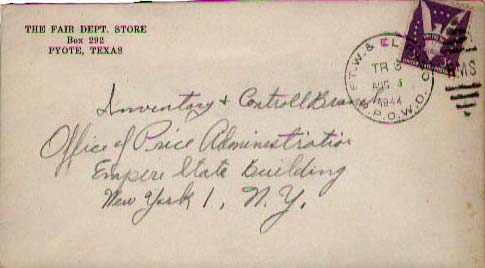 THE FAIR DEPT. STORE
Box 292
PYOTE, TEXAS
FT. W. & EL P
TR 3
AUG 3
1944
R.P.O. W.D.
RMS
Inventory & Controll Branch
Office of Price Administration
Empire State Building
New York 1, N.Y.